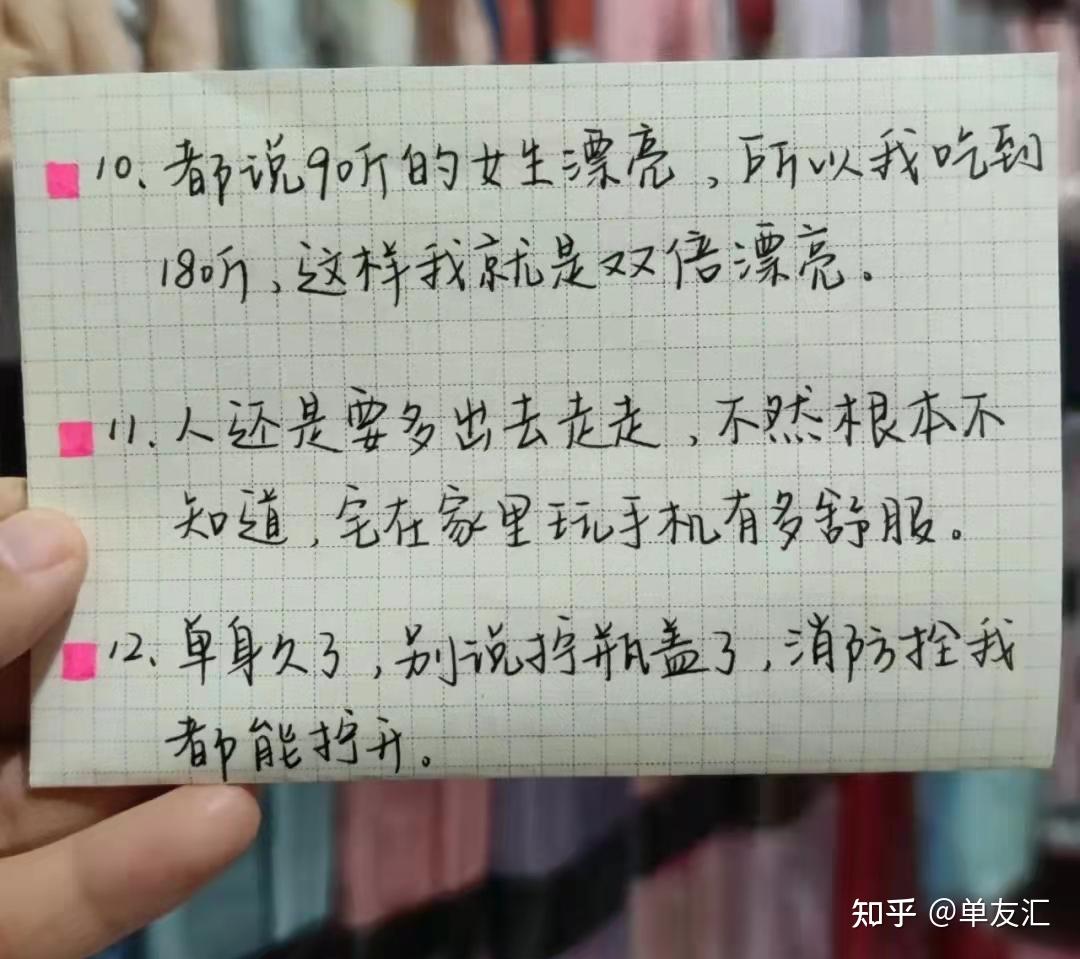 10、都说90斤的女生漂亮，所以我吃到
180斤，这样我就是双倍漂亮。
11、人还是要多出去走走，不然根本不
知道，宅在家里玩手机有多舒服。
12、单身久了，别说拧瓶盖了，消防拴我
都能拧开。
知乎 @单友汇